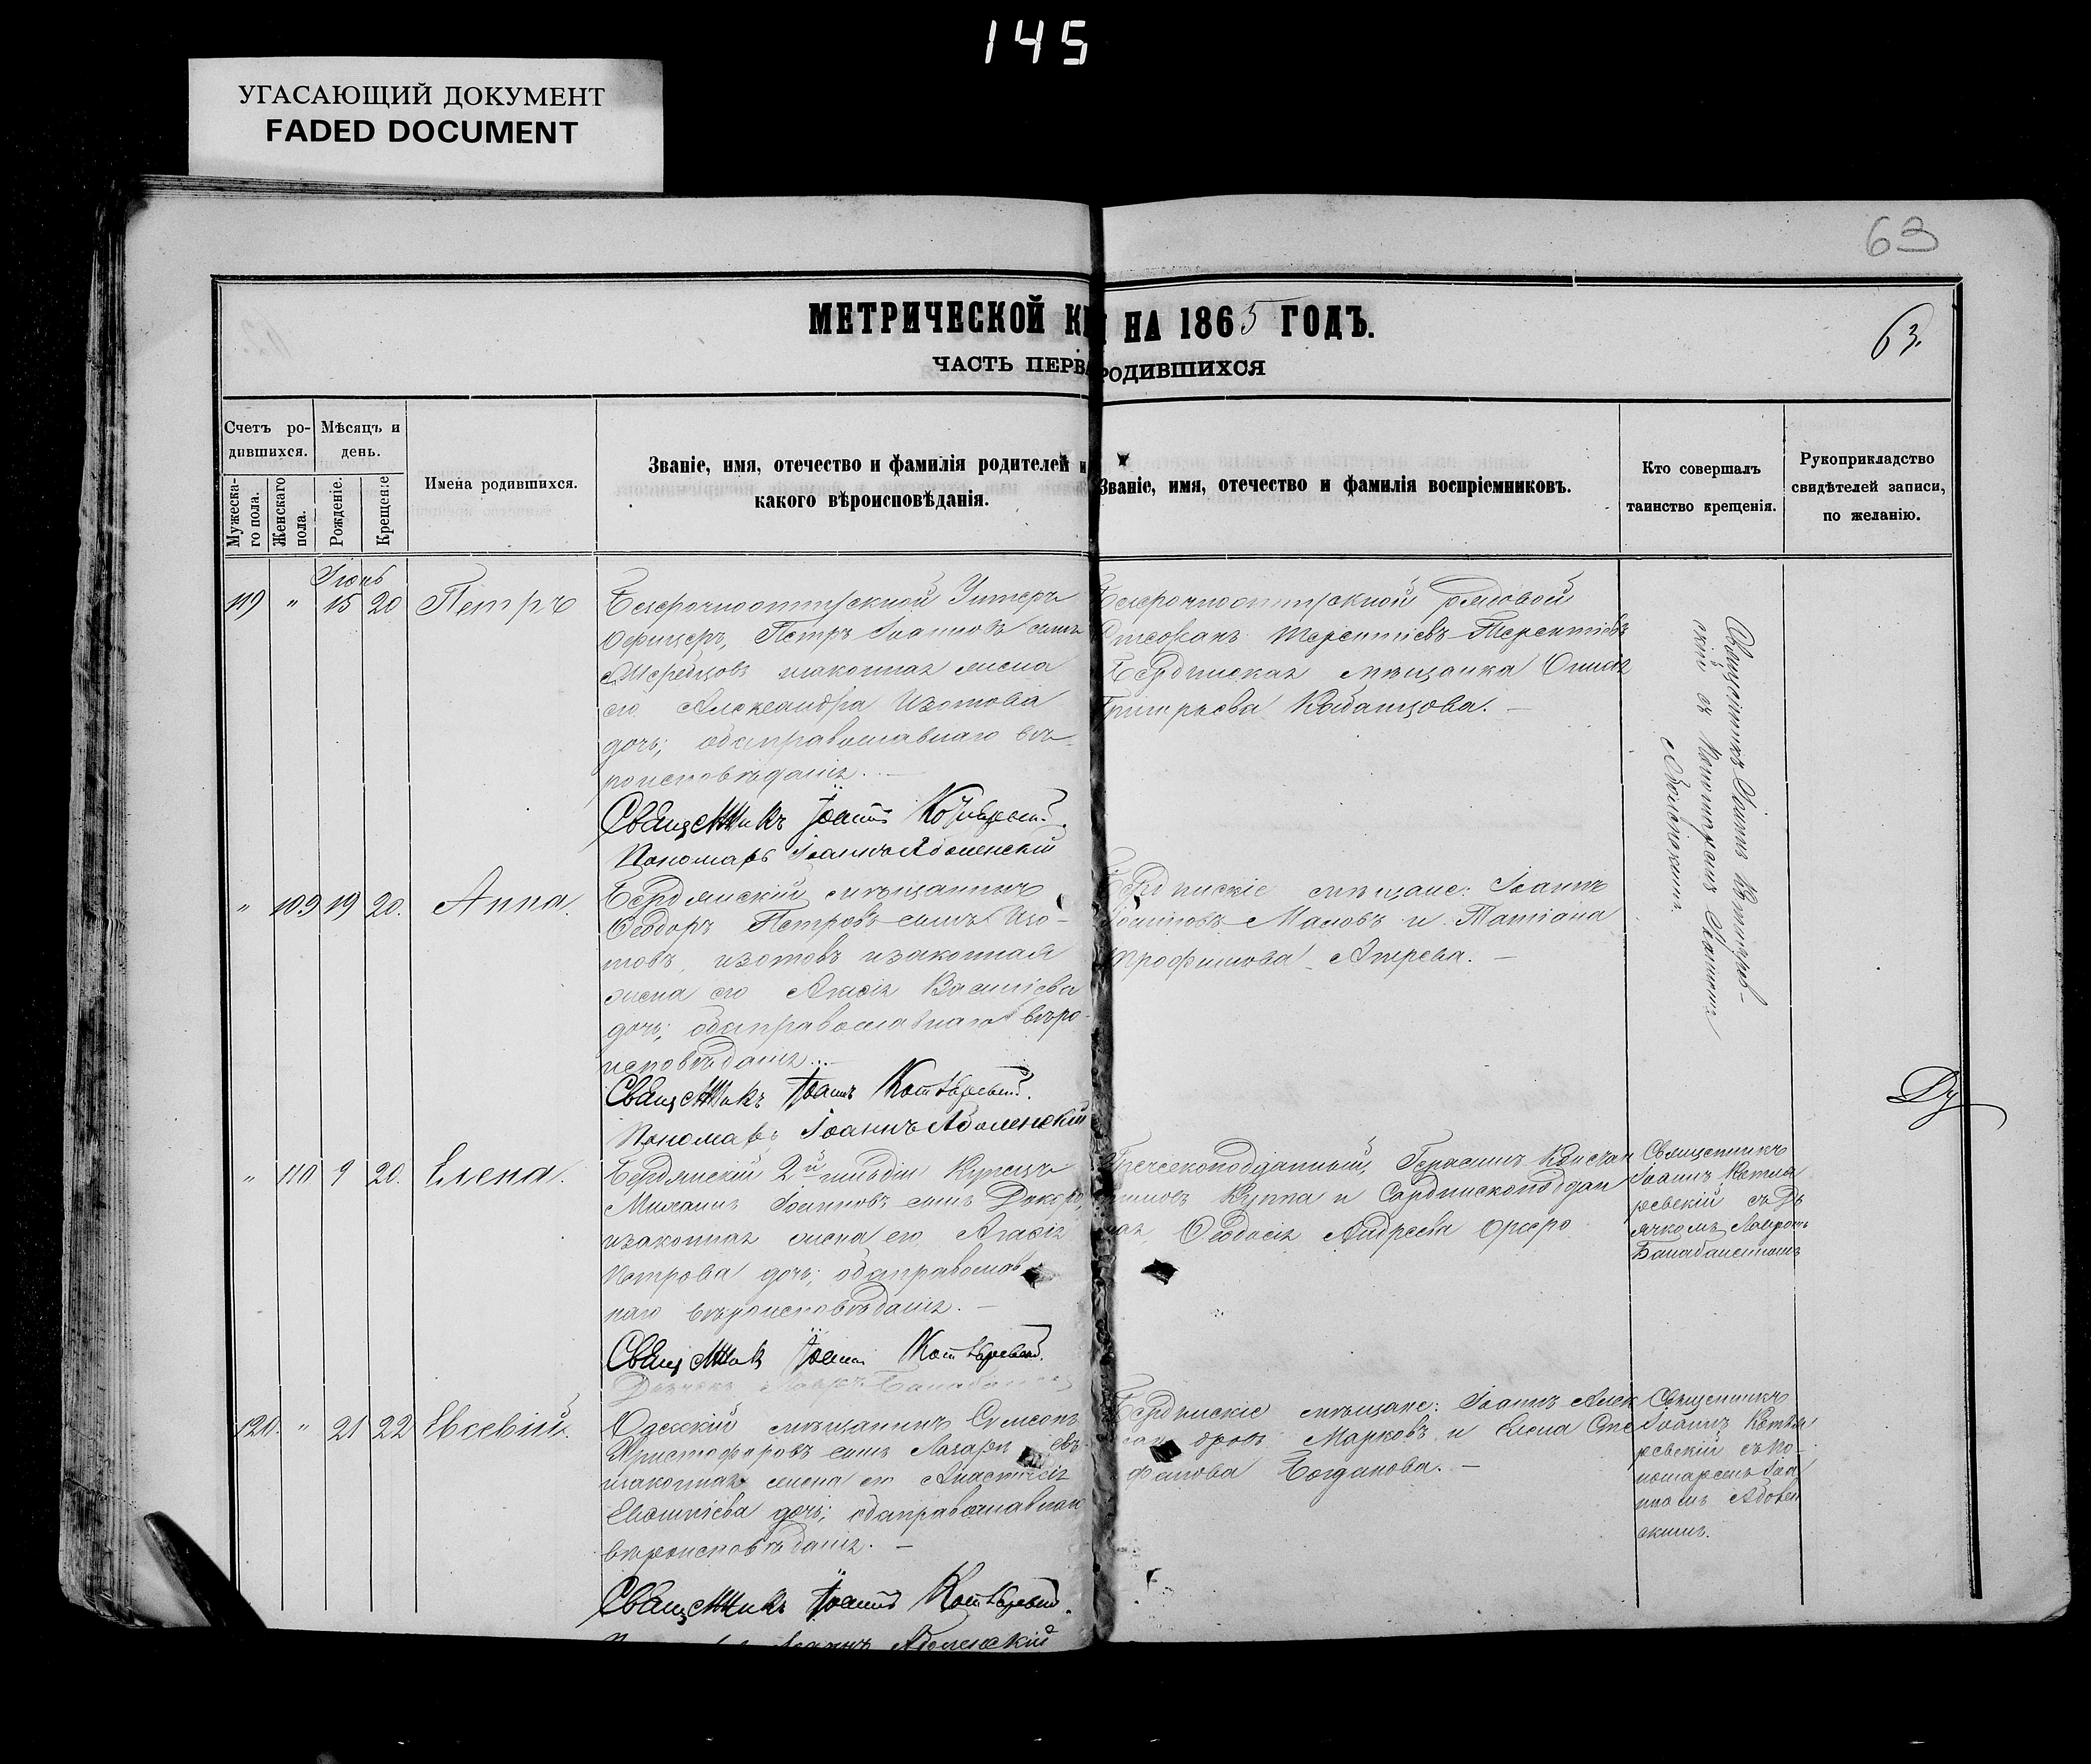 145
УГАСАЮЩИЙ ДОКУМЕНТ
FADED DOCUMENT
63
МЕТРИЧЕСКОЙ КН НА 1865 ГОДЪ.
63.
ЧАСТЬ ПЕРВА РОДИВШИХСЯ
Счетъ ро-
дившихся.
Мѣсяцъ и
день.
Мужеска-
го пола.
Женскаго
пола.
Рожденіе.
Крещеніе
Имена родившихся.
Званіе, имя, отечество и фамилія родителей и
какого вѣроисповѣданія.
Званіе, имя, отечество и фамилія воспріемниковъ.
Кто совершалъ
таинство крещенія.
Рукоприкладство
свидѣтелей записи,
по желанію.
Іюнь
119 " 15 20 Петръ
Безсрочноотпускной Унтеръ
Офицеръ, Петръ Іоанновъ сынъ
изаконная жена
его Александра Изотова
дочь; оба православнаго вѣ-
роисповѣданія.
Священникъ Іоаннъ Котляревскій.
Пономарь Іоаннъ Аболенскій
Безсрочноотпускной рядовой
Терентіевъ Терентіевъ
Бердянская мѣщанка
Григорьева Кабанцова.
Священникъ Іоаннъ Котлярев-
скій съ Пономаремъ Іоанномъ
Аболенскимъ.
" 109 19 20. Анна.
Бердянскій мѣщанинъ
Ѳеодоръ Петровъ сынъ Изо-
товъ, изотовъ изаконная
жена его Агафія Василіева
дочь; оба православнаго вѣро-
исповѣданія.
Священникъ Іоаннъ Котляревскій.
Пономарь Іоаннъ Аболенскій
Бердянскіе мѣщане: Іоаннъ
Іоанновъ Маловъ и Татіана
Трофимова
" 110 9 20. Елена.
Бердянскій 2й гильдіи Купецъ
Михаилъ Іоанновъ сынъ
изаконная жена его Агафія
Петрова дочь; оба православ
наго вѣроисповѣданія.
Священникъ Іоаннъ Котляревскій.
Дьячекъ
Греческоподданный Герасимъ
Куппа и Сардинскоподдан
ная Ѳеодосія Андреева
Священникъ
Іоаннъ Котля
ревскій съ Дь
ячкомъ
120. " 21 22 Евсевій.
Одесскій мѣщанинъ Сумеонъ
Христофоровъ сынъ Лазаревъ
изаконная жена его Анастасія
дочь; оба православнаго
вѣроисповѣданія.
Священникъ Іоаннъ Котляревскій.
Іоаннъ Аболенскій
Бердянскіе мѣщане: Іоаннъ Алек
сандровъ Марковъ и Елена Сте
фанова Богданова.
Священникъ
Іоаннъ Котля
ревскій съ По-
номаремъ Іоа
нномъ Аболен
скимъ.